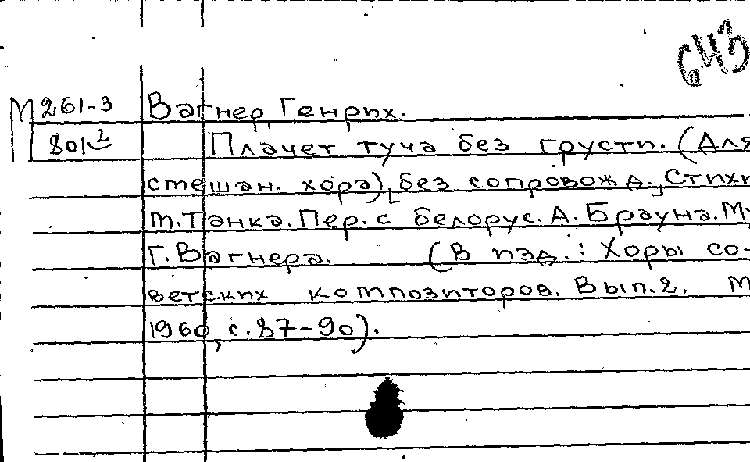 643
М 261-3 Вагнер Генрих.
801 Плачет туча без грусти. (Для
смешан. хора), без сопровожд., Стихи
М. Танка. Пер. с белорус. А. Брауна. Му
Г. Вагнера. (В изд.: Хоры со-
ветских композиторов. Вып. 2. М
1960, с. 87-90).